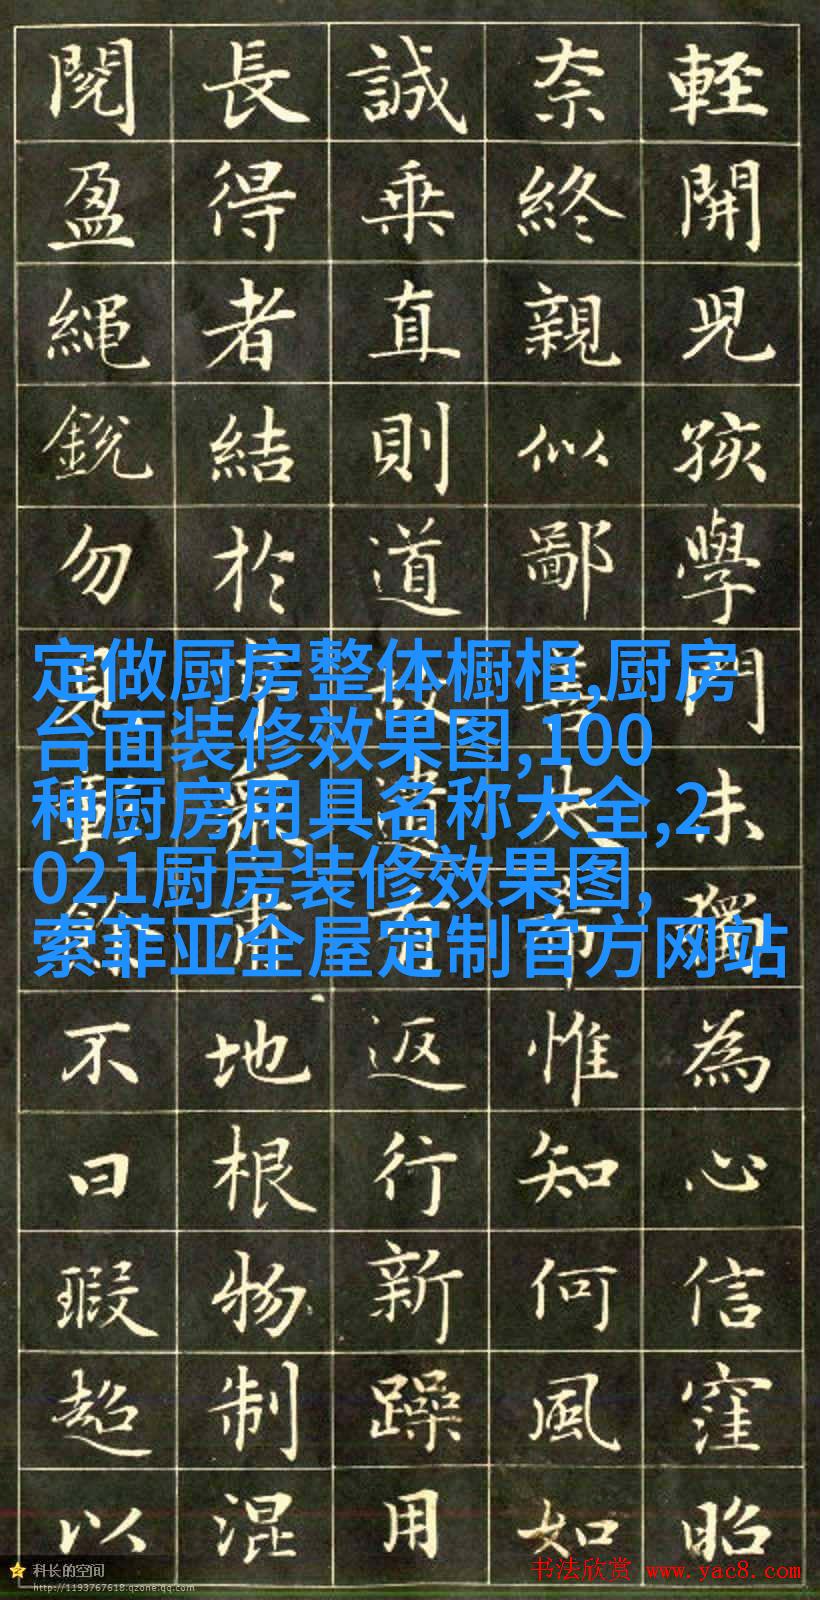 輕開兒孩學門未獨為心信窪昭
奈終親似鄙大惟知何風如
誠乘直則道遺返行新躁用
長得者結於地根物制混
閱盈繩銳勿不曰瑕超以
定做厨房整体橱柜,厨房
台面装修效果图,100
种厨房用具名称大全,2
021厨房装修效果图,
索菲亚全屋定制官方网站
科长的空间
http://1193767618.qzone.qq.com
书法欣赏 www.yac8.com